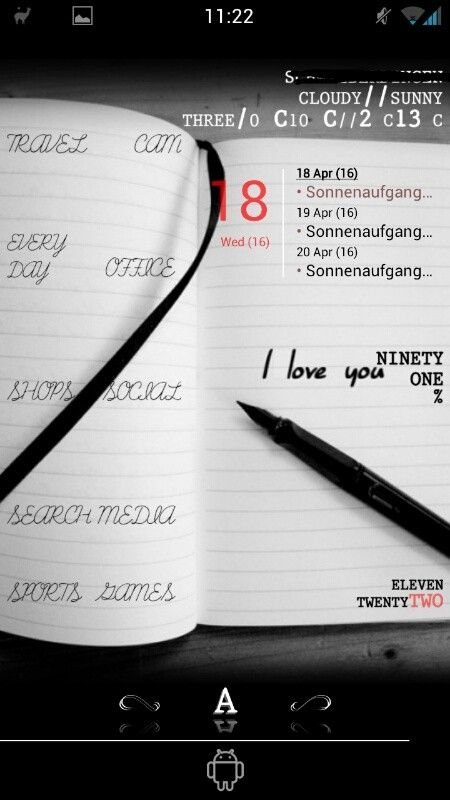 11:22
CLOUDY//SUNNY
THREE/0 C10 C//2 C13 C
TRAVEL CAM
EVERY
DAY OFFICE
SHOPS SOCIAL
SEARCH MEDIA
SPORTS GAMES
18
Wed (16)
18 Apr (16)
• Sonnenaufgang...
19 Apr (16)
• Sonnenaufgang...
20 Apr (16)
• Sonnenaufgang...
I love you
NINETY
ONE
%
ELEVEN
TWENTYTWO
A